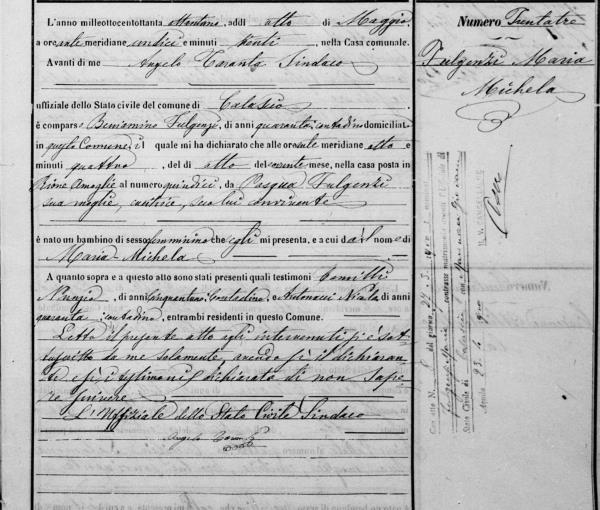 L'anno milleottocentottanta ottantuno, addì otto di Maggio
a ore ante meridiane undici e minuti venti, nella Casa comunale.
Avanti di me Angelo Taranta Sindaco
uffiziale dello Stato civile del comune di Calascio
è comparso Beniamino Fulgenzi, di anni quaranta, contadino domiciliato
in questo Comune, il quale mi ha dichiarato che alle ore ante meridiane otto e
minuti quattro, del dì otto del corrente mese, nella casa posta in
Rione al numero quindici, da Pasqua Fulgenzi
sua moglie, seco lui convivente
è nato un bambino di sesso femminino che egli mi presenta, e a cui dà il nome di
Maria Michela
A quanto sopra e a questo atto sono stati presenti quali testimoni
Nunzio, di anni cinquantuno, contadino, e Antonacci Nicola di anni
quaranta, contadino, entrambi residenti in questo Comune.
Letto il presente atto agli intervenuti si è sot
toscritto da me solamente, avendo sì il dichiaran
te sì i testimoni dichiarato di non sape
re firmare
L'Uffiziale dello Stato Civile Sindaco
Angelo Taranta
Numero Trentatre
Fulgenzi Maria
Michela
Con atto N. 8 del giorno
contratto matrimonio
Stato Civile di Calascio con